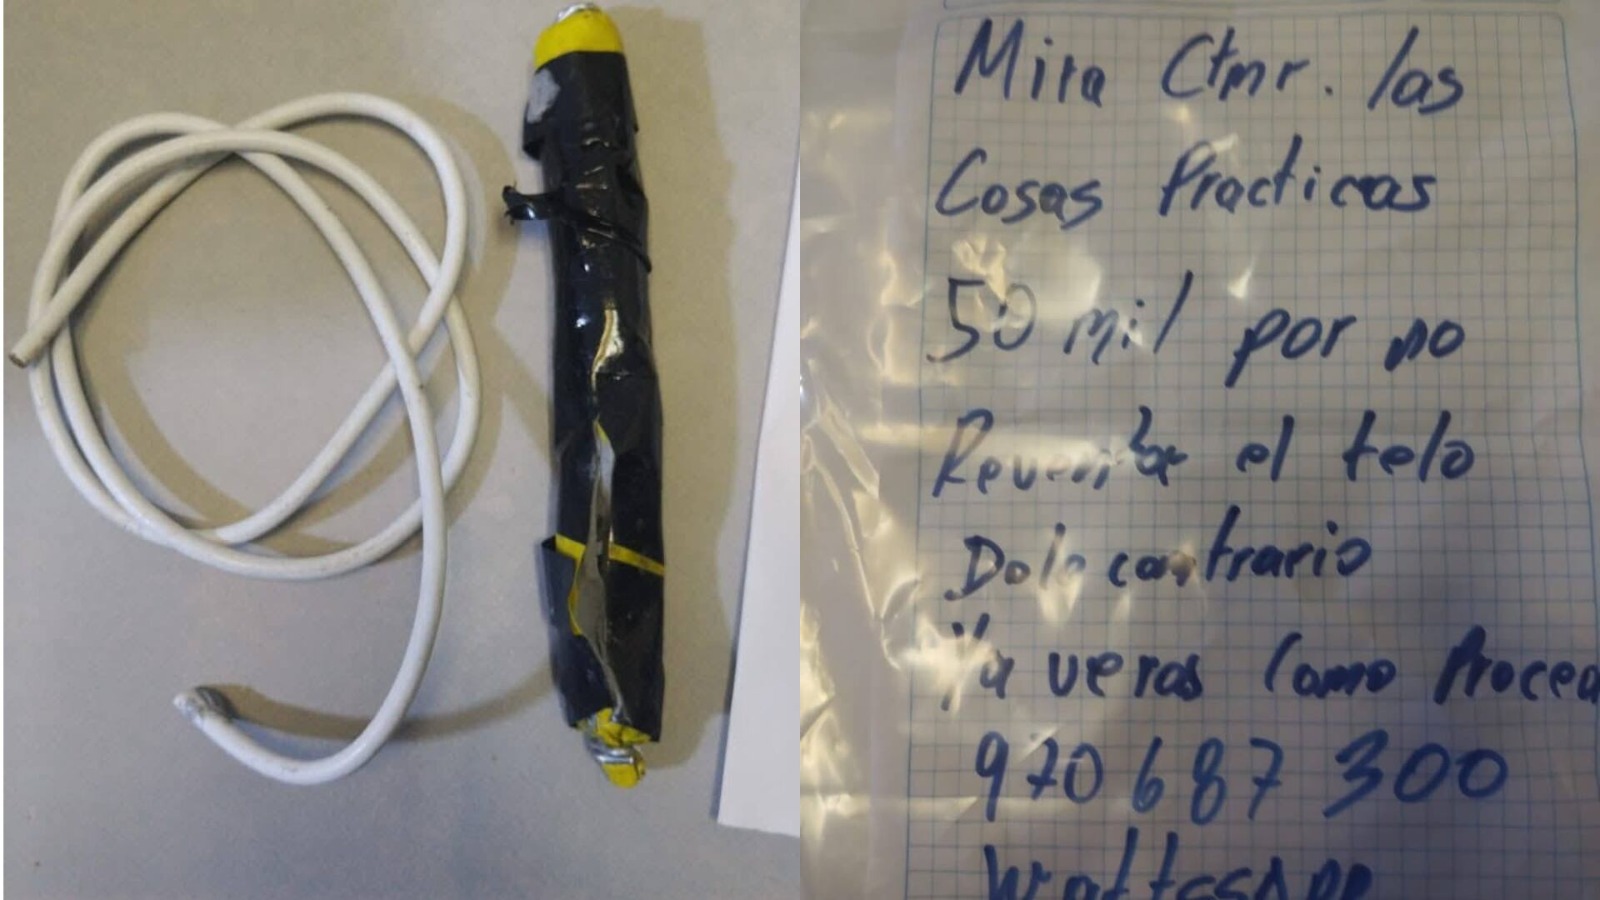 Mira Ctmr. las
Cosas Practicas
50 mil por no
Reventar el telo
Dolo contrario
Ya veras Como Proced
970687300
WattssApp